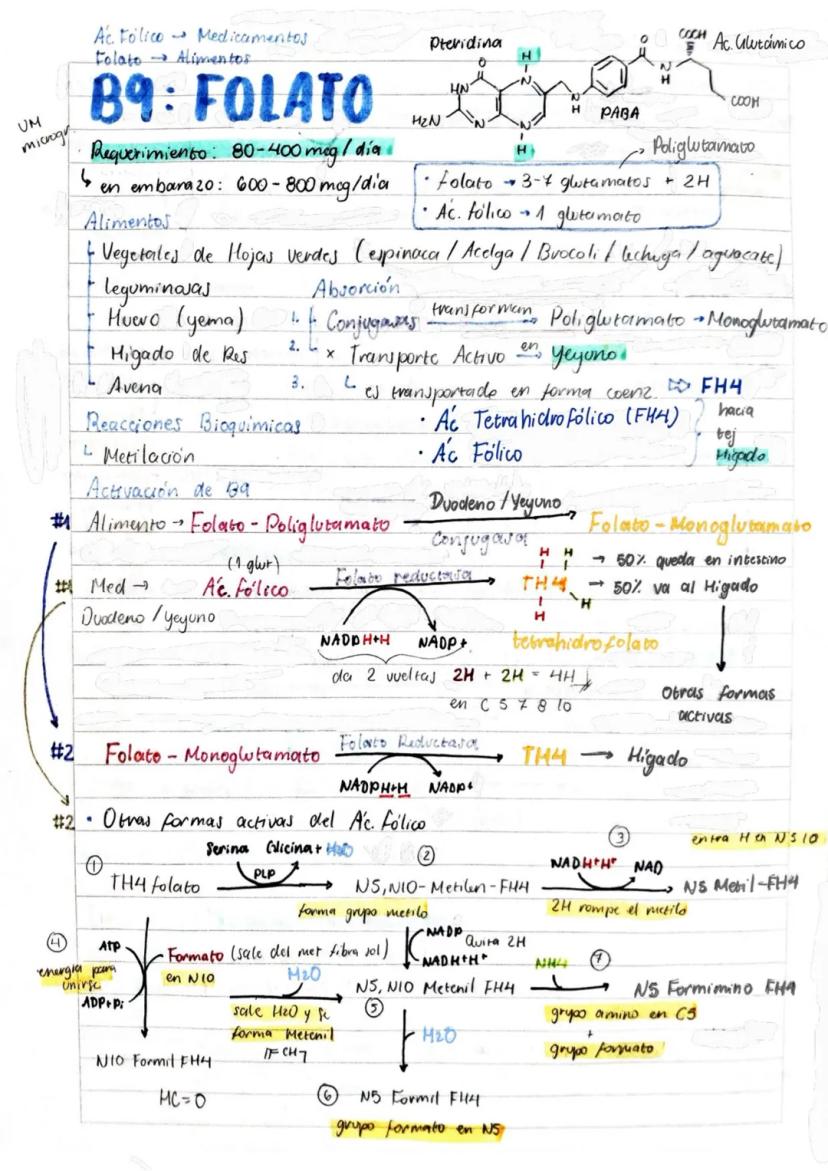 Ác. Fólico → Medicamentos
Folato → Alimentos
B9: FOLATO
UM
microgr
Pteridina
H
O
HN
N
N
H2N
N
N
H
N
H
PABA
O
N
H
COOH
Ac. Glutámico
COOH
Requerimiento: 80-400 mcg/día
↳ en embarazo: 600-800 mcg/día
Poliglutamato
• Folato → 3-7 glutamatos + 2H
• Ác. fólico → 1 glutamato
Alimentos
Vegetales de Hojas verdes (espinaca / Acelga / Brocoli / lechuga / aguacate)
leguminosas
Huevo (yema)
Higado de Res
Avena
Absorción
1. Conjugasas transforman → Poliglutamato → Monoglutamato
2. x Transporte Activo en → Yeyuno
3. ↳ es transportado en forma coenz. ⇨ FH4
• Ác Tetrahidrofólico (FH4)
• Ác Fólico
hacia
tej
Higado
Reacciones Bioquímicas
↳ Metilación
Activación de B9
#1 Alimento → Folato - Poliglutamato Duodeno / Yeyuno → Folato - Monoglutamato
Conjugasa
(1 glut)
#1 Med → Ác. fólico Folato reductasa → TH4
H H
H
H
→ 50% queda en intestino
→ 50% va al Higado
Duodeno / yeyuno
NADPH+H NADP+
tetrahidrofolato
da 2 vueltas 2H + 2H = 4H
en C 5 7 8 10
Otras formas
activas
#2 Folato - Monoglutamato Folato Reductasa → TH4 → Higado
NADPH+H NADP+
#2 • Otras formas activas del Ác. fólico
1 TH4 folato
Serina Glicina + H2O
PLP
2
N5, N10-Metilen-FH4
forma grupo metilo
3
NADH+H+ NAD
2H rompe el metilo
entra H en N5 10
N5 Metil-FH4
4
ATP
energia para
unirse
ADP+Pi
Formato (sale del met fibra sol)
en N10
NADP
Quita 2H
NADH+H+
H2O
sale H2O y se
forma Metenil
N5, N10 Metenil FH4
5
NH4
7
N5 Formimino FH4
grupo amino en C5
+
grupo formato
H2O
N10 Formil FH4
HC=O
6 N5 Formil FH4
grupo formato en N5